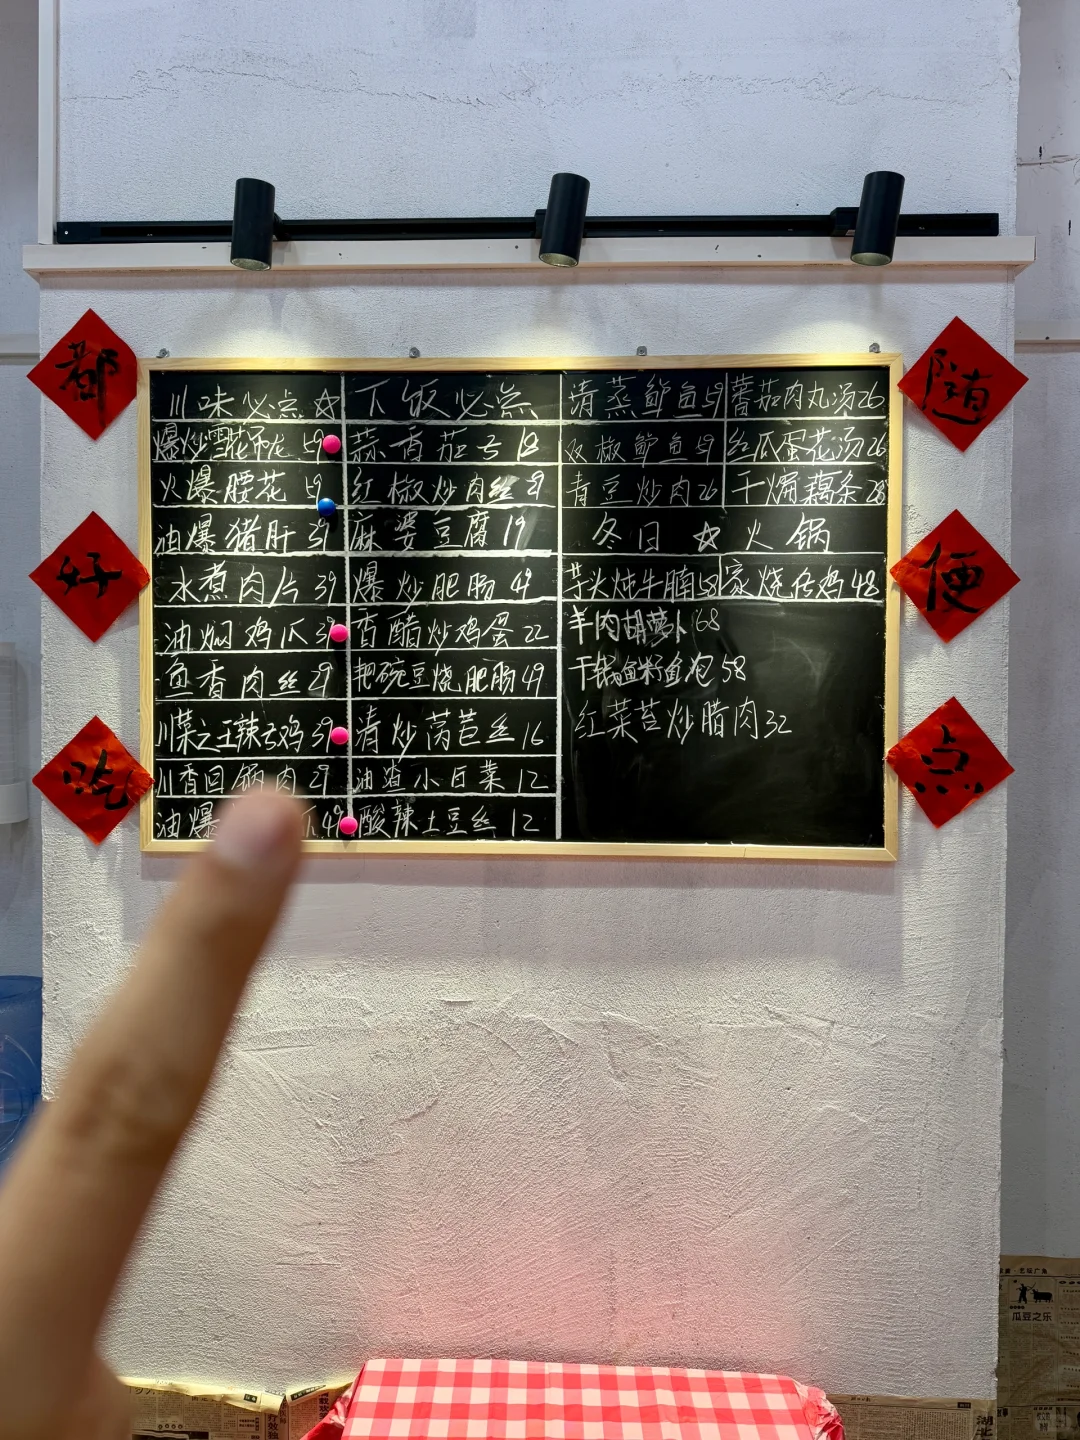 都
好
吃
川味必点☆
爆炒雪花吊龙 59
火爆腰花 59
油爆猪肝 39
水煮肉片 39
油焖鸡爪 39
鱼香肉丝 29
川菜之王辣子鸡 39
川香回锅肉 29
油爆 49
下饭必点
蒜香茄子 18
红椒炒肉丝 29
麻婆豆腐 19
爆炒肥肠 49
香醋炒鸡蛋 22
耙豌豆烧肥肠 49
清炒莴苣丝 16
油渣小白菜 12
酸辣土豆丝 12
清蒸鲈鱼 59 蕃茄肉丸汤 26
双椒鲈鱼 59 丝瓜蛋花汤 26
青豆炒肉 26 干煸藕条 28
冬日 ☆ 火锅
芋头炖牛腩 58 家烧仔鸡 48
羊肉胡萝卜 68
干锅鱼籽鱼泡 58
红菜苔炒腊肉 32
随
便
点
瓜豆之乐